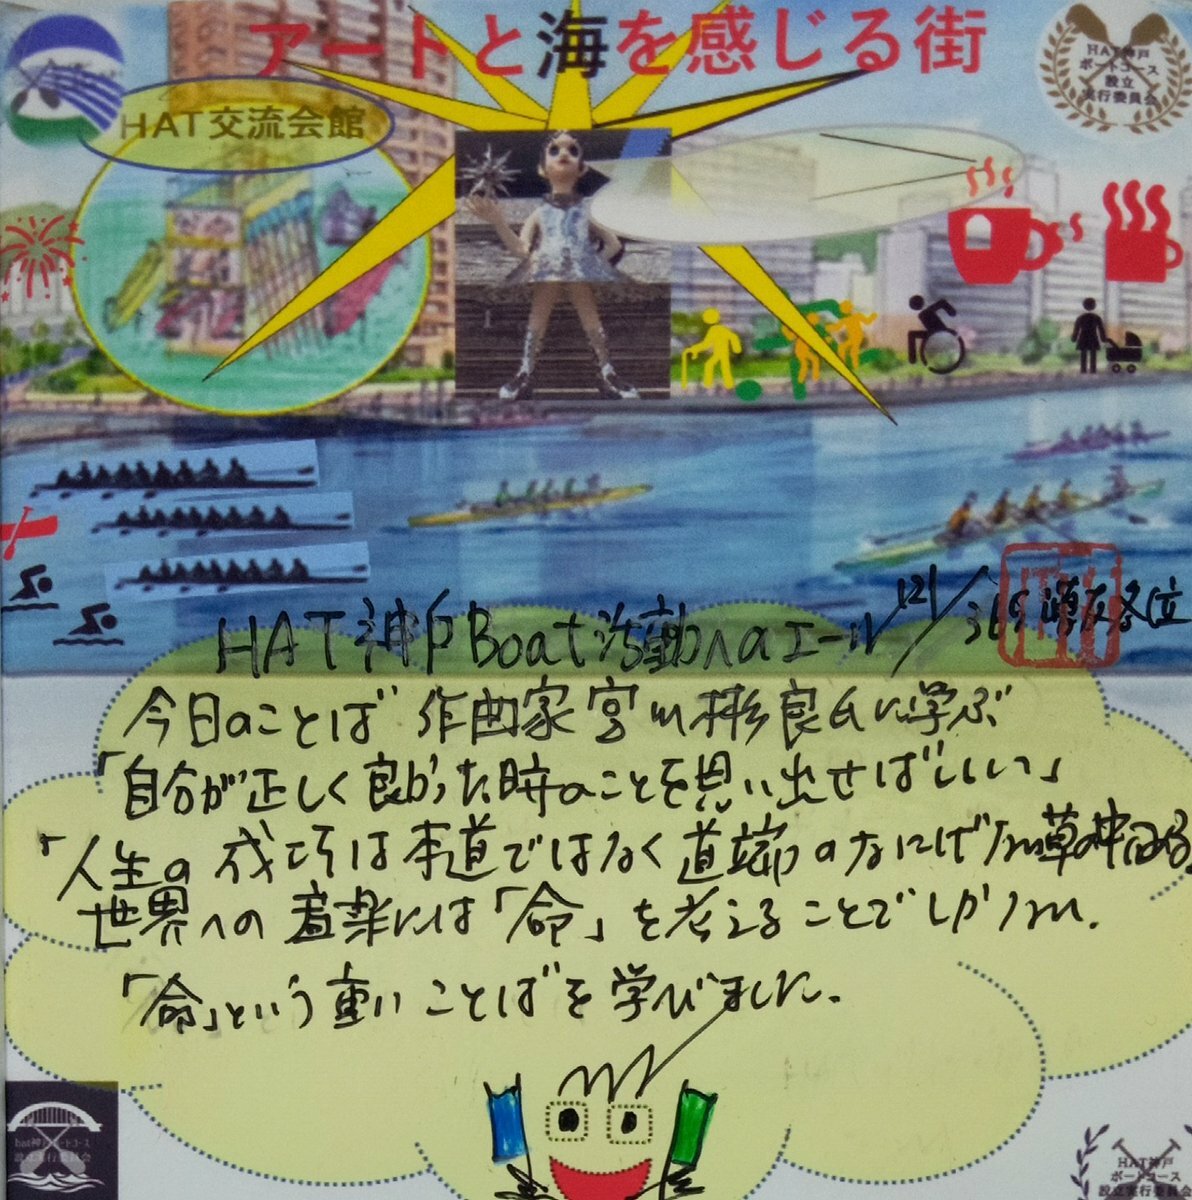 アートと海を感じる街
HAT神戸
ボートコース
設立
実行委員会
HAT交流会館
HAT神戸Boat活動へのエール 121/365 各位
今日のことば 作曲家 宮川彬良氏に学ぶ
「自分が正しく良かった時のことを思い出せばいい」
「人生の成功は本道ではなく道端のなにげない草の中にある
世界への音楽には「命」を考えることでしかない.
「命」という重いことばを学びました.
hat神戸ボートコース
設立実行委員会
HAT神戸
ボートコース
設立実行委員会